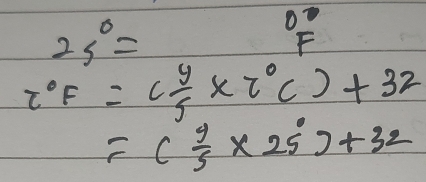 25° = °F
τ°F = (9/5 × τ°C) + 32
= (9/5 × 25°) + 32